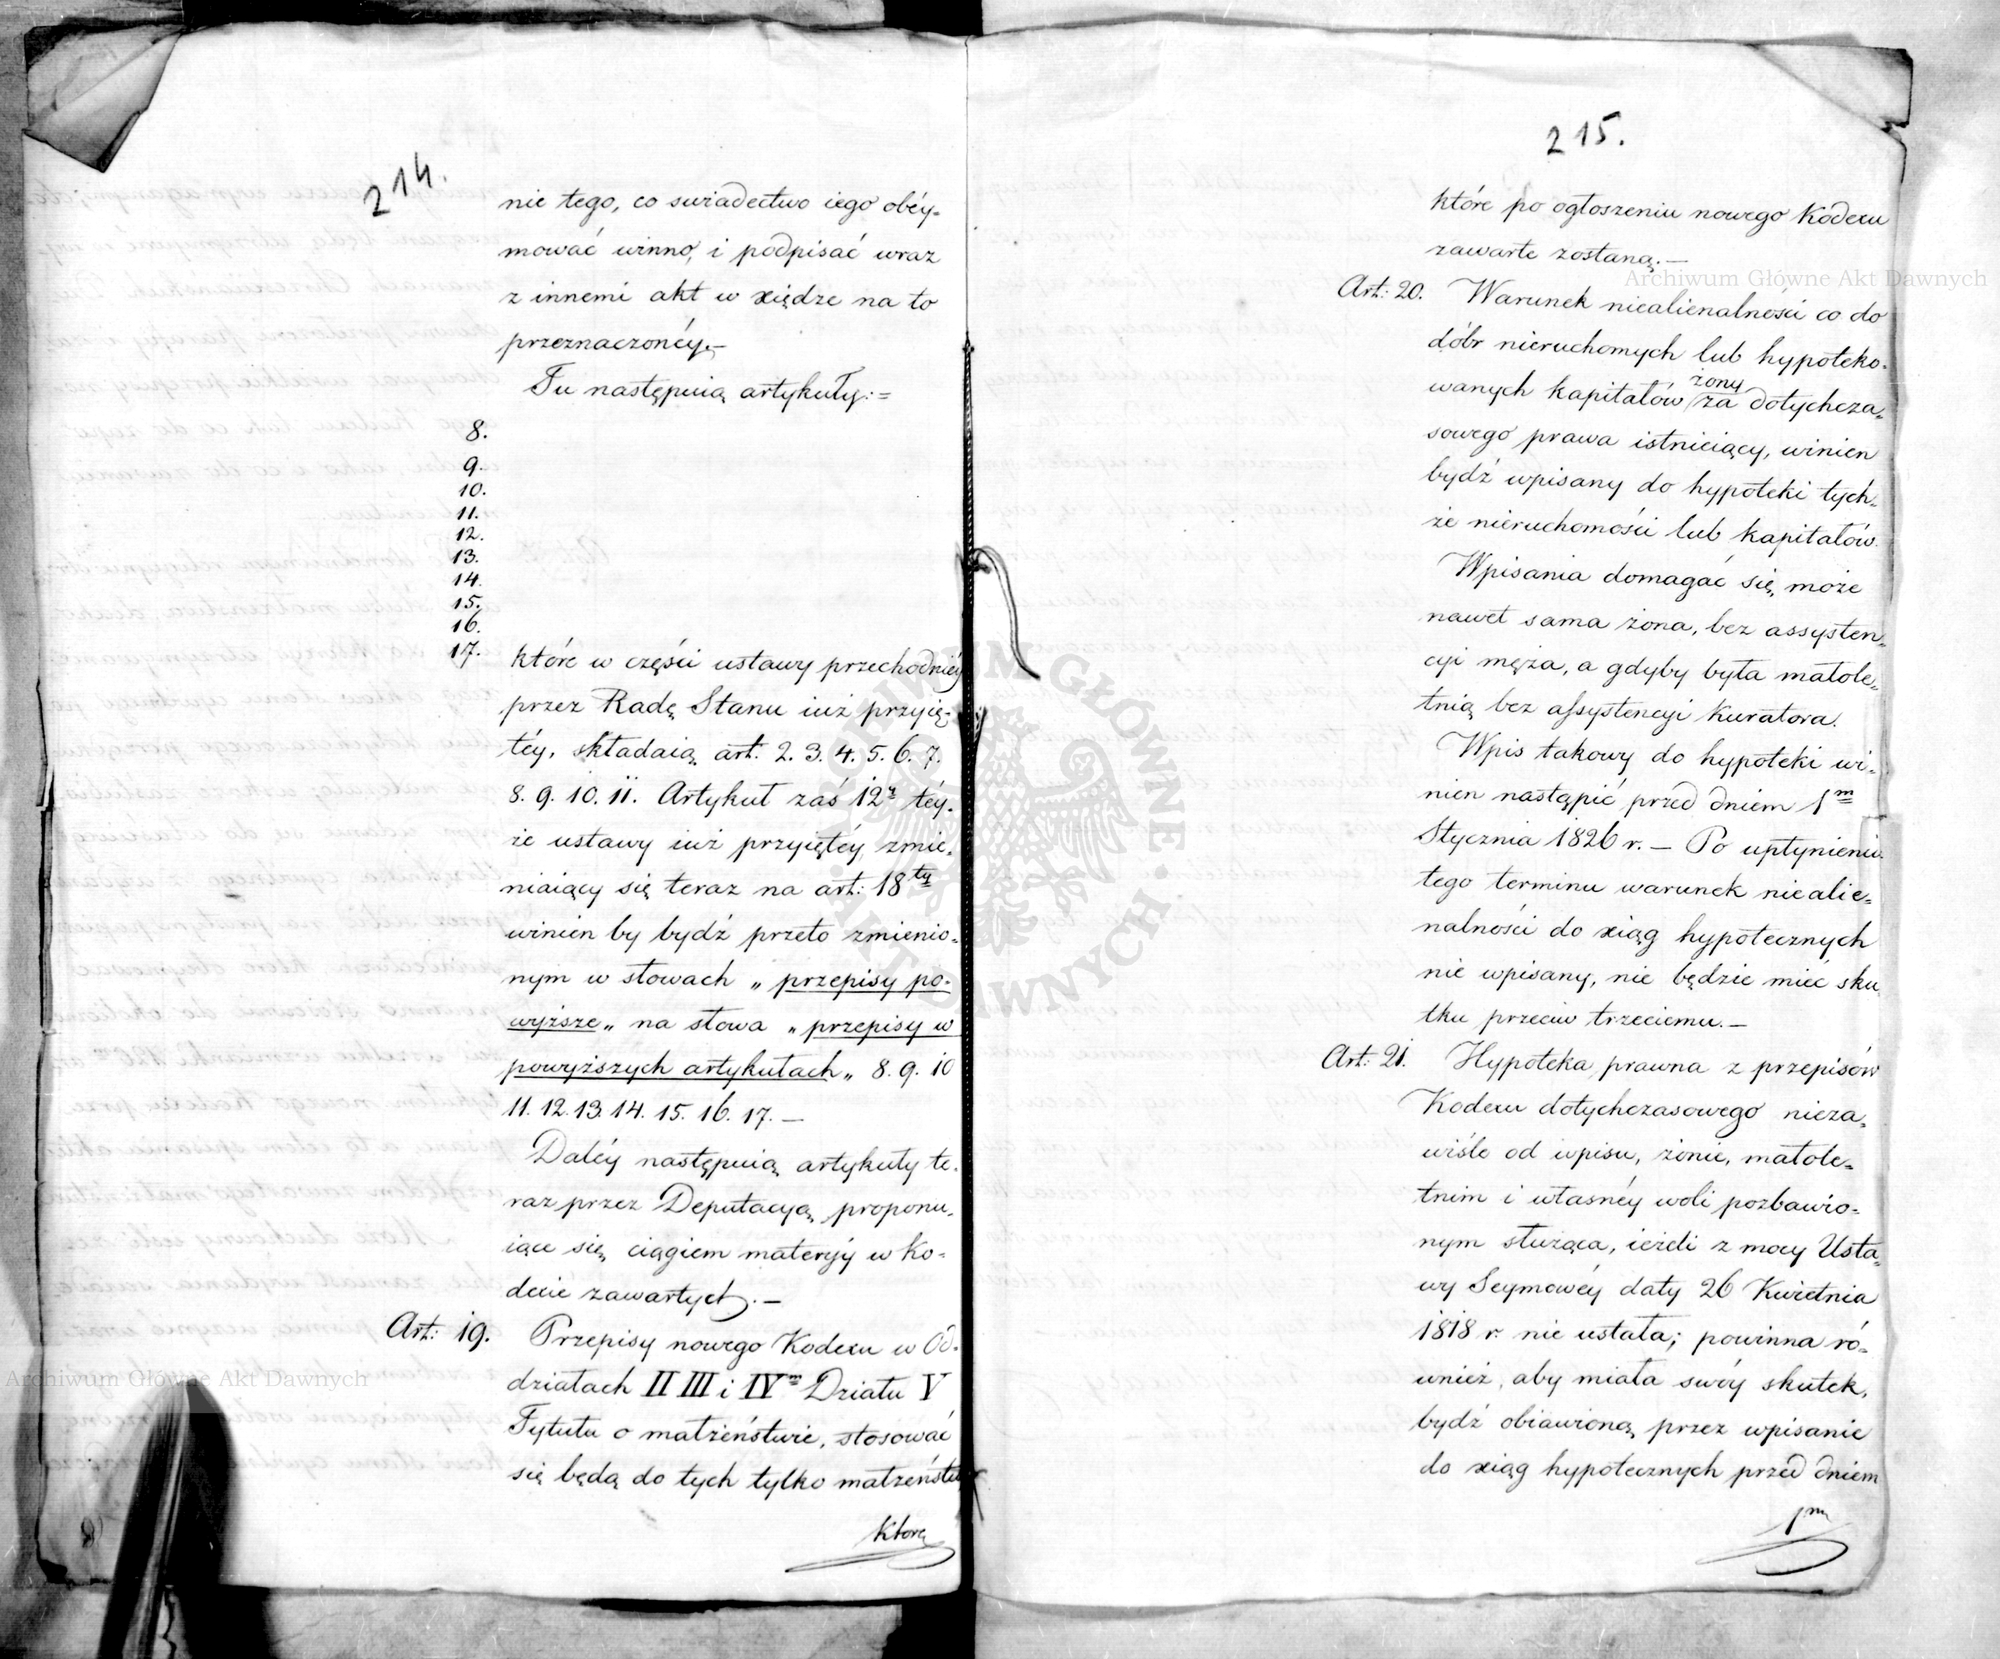 214.
nie tego, co swiadectwo iego obéy-
mować winno, i podpisać wraz
z innemi akt w xiędze na to
przeznaczonéy.—
Tu następuią artykuły:=
8.
9.
10.
11.
12.
13.
14.
15.
16.
17. które w części ustawy przechodniéy
przez Radę Stanu iuż przyię-
téy, składaią art. 2. 3. 4. 5. 6. 7.
8. 9. 10. 11. Artykuł zaś 12y téy-
że ustawy iuż przyiętéy, zmie-
niaiący się teraz na art: 18ty
winien by bydź przeto zmienio-
nym w słowach „przepisy po-
wyższe„ na słowa „przepisy w
powyższych artykułach„ 8. 9. 10
11. 12. 13. 14. 15. 16. 17. —
Daléy następuią artykuły te-
raz przez Deputacyą proponu-
iące się ciągiem materyy w Ko-
dexie zawartych.—
Art: 19. Przepisy nowego Kodexu w Od-
działach II III i IVm Działu V
Tytułu o małżeństwie, stosować
się będą do tych tylko małżeństw
które
215.
które po ogłoszeniu nowego Kodexu
zawarte zostaną.—
Art: 20. Warunek niealienalności co do
dóbr nieruchomych lub hypoteko-
wanych kapitałów żony za dotychcza-
sowego prawa istnieiący, winien
bydź wpisany do hypoteki tych-
że nieruchomości lub kapitałów.
Wpisania domagać się może
nawet sama żona, bez assysten-
cyi męża, a gdyby była małole-
tnią bez assystencyi Kuratora.
Wpis takowy do hypoteki wi-
nien nastąpić przed dniem 1m
Stycznia 1826 r. — Po upłynieniu
tego terminu warunek niealie-
nalności do xiąg hypotecznych
nie wpisany, nie będzie mieć sku-
tku przeciw trzeciemu.—
Art: 21. Hypoteka prawna z przepisów
Kodexu dotychczasowego nieza-
wiśle od wpisu, żonie, małole-
tnim i własnéy woli pozbawio-
nym służąca, ieżeli z mocy Usta-
wy Seymowéy daty 26 Kwietnia
1818 r. nie ustała; powinna ró-
wnież, aby miała swóy skutek,
bydź obiawioną przez wpisanie
do xiąg hypotecznych przed dniem
1m
Archiwum Główne Akt Dawnych
Archiwum Główne Akt Dawnych
ARCHIWUM GŁÓWNE AKT DAWNYCH